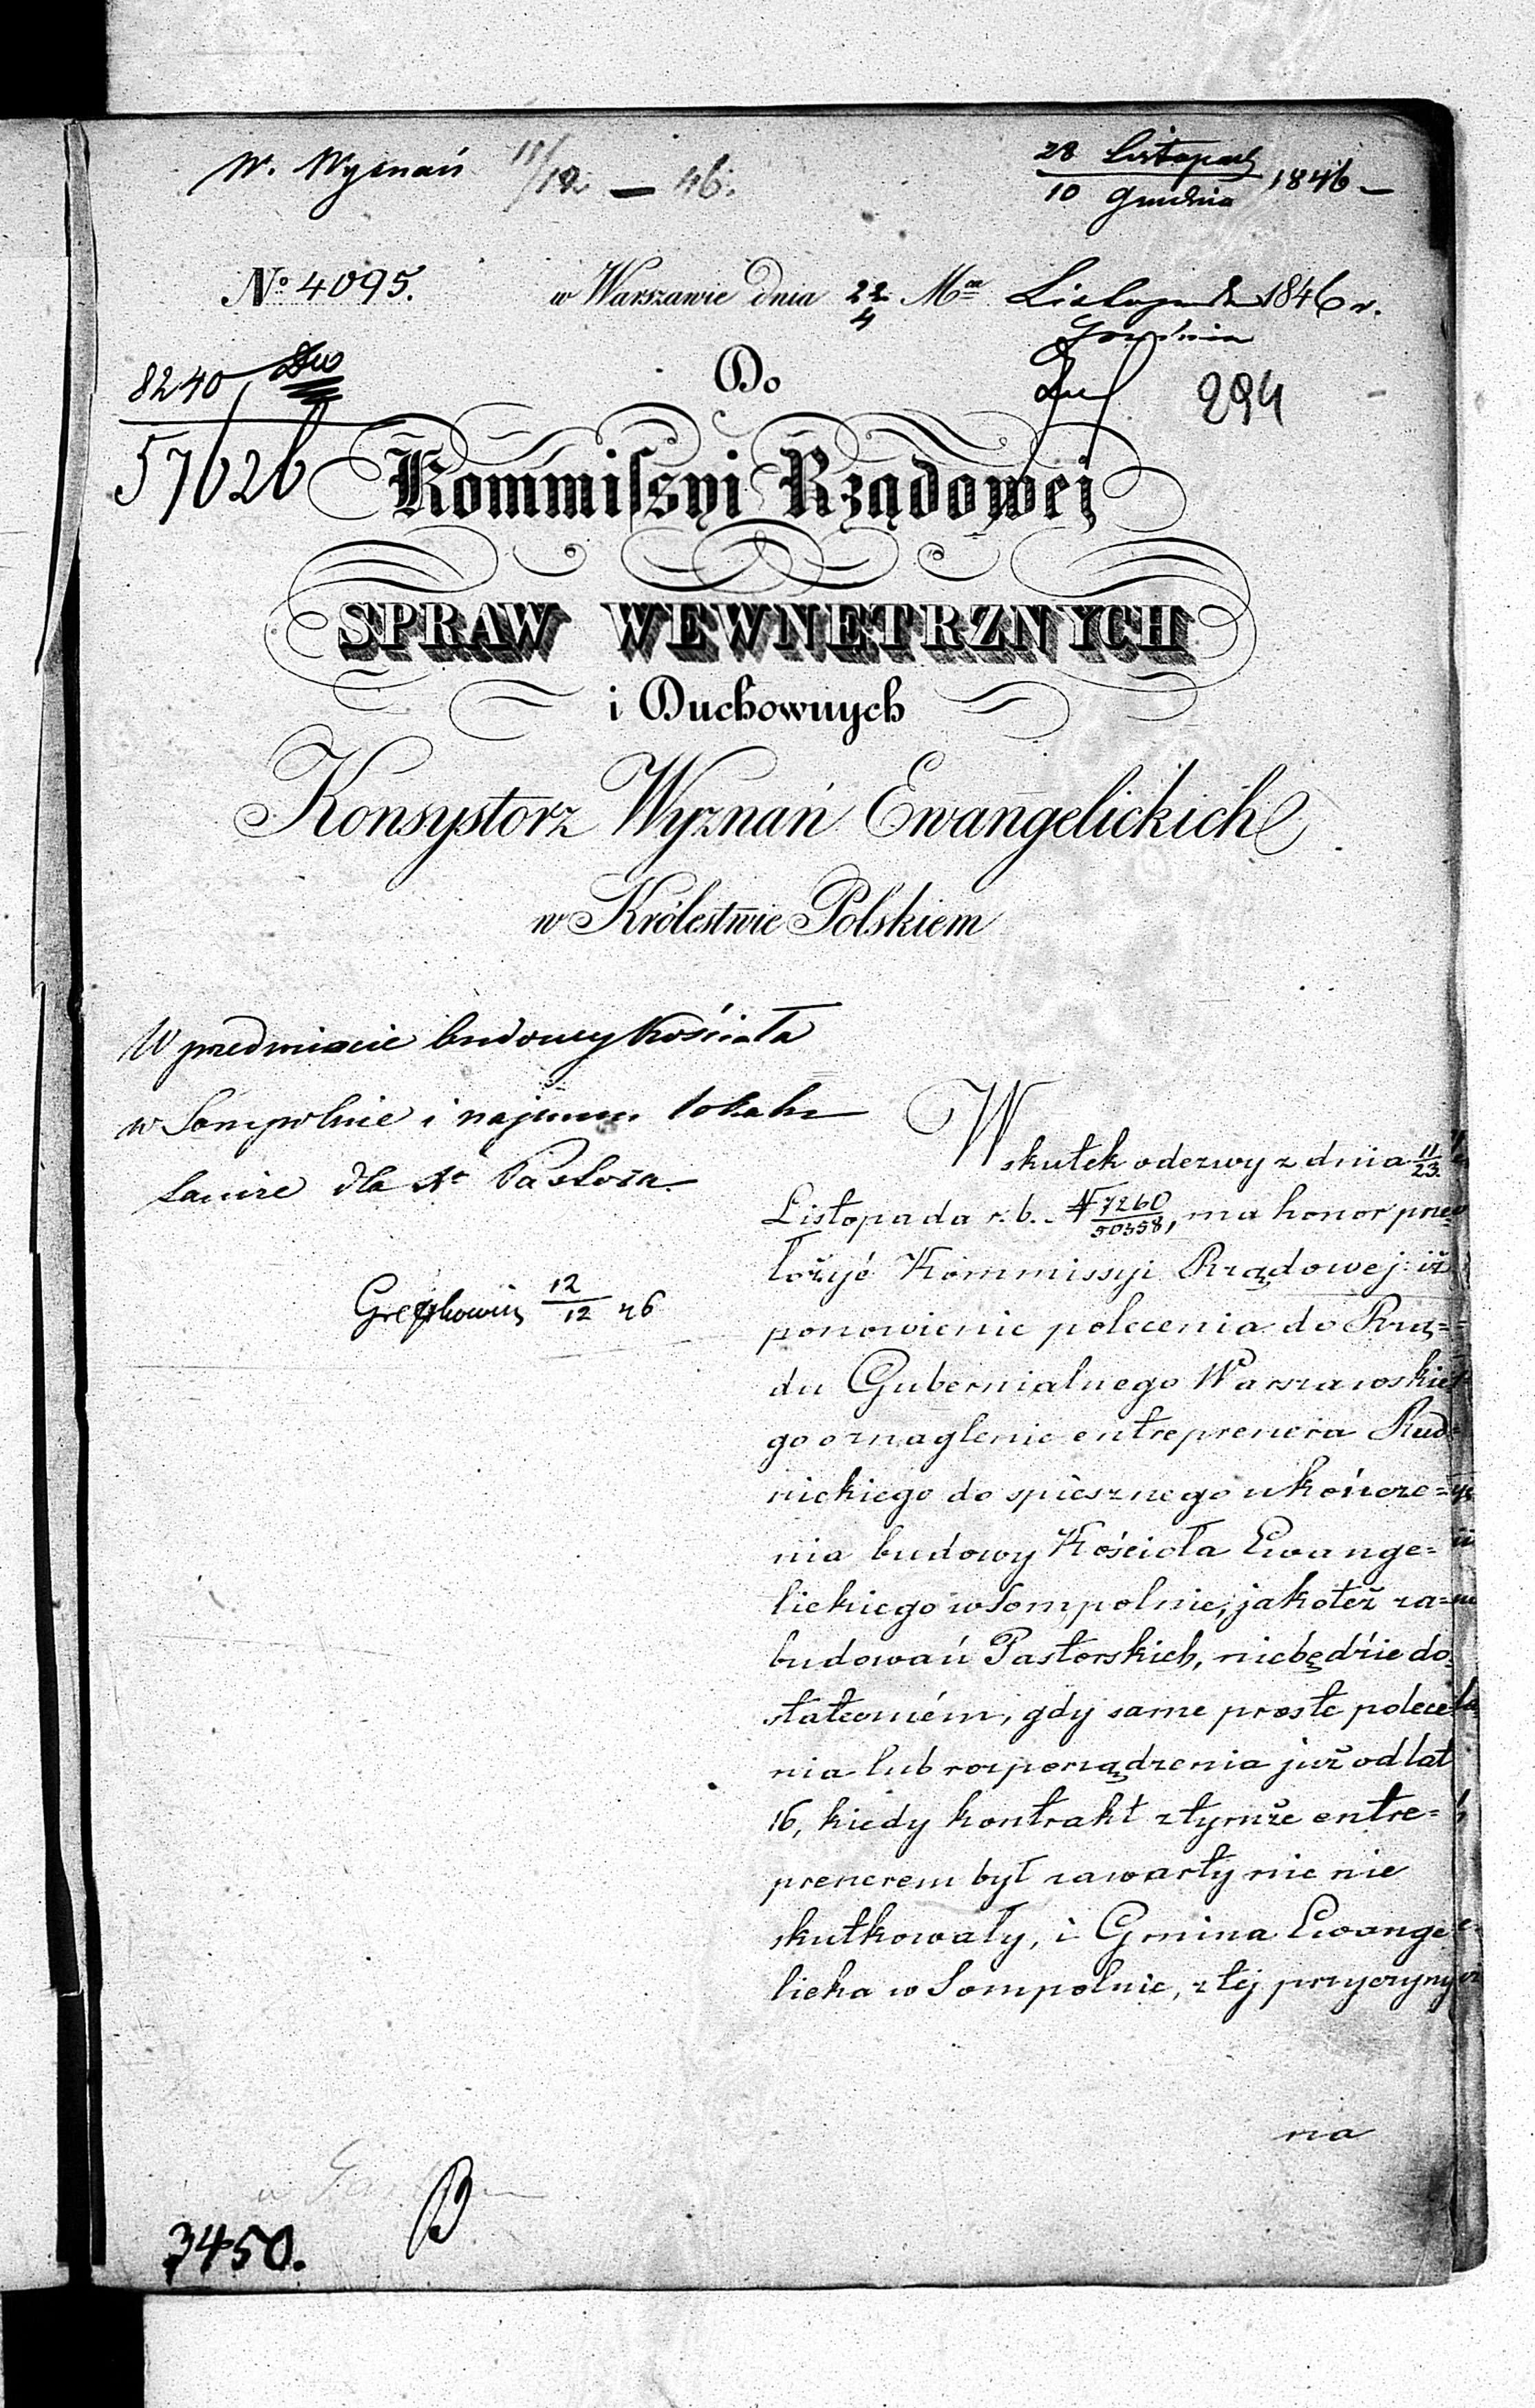 W. Wyznań 11/12 — 46.
28 Listopada / 10 Grudnia 1846 —
No. 4095.
w Warszawie dnia 22/4 Mca Listopada / Grudnia 1846 r.
8240
57626
Do
294
Kommissyi Rządowej
SPRAW WEWNETRZNYCH
i Duchownych
Konsystorz Wyznań Ewangelickich
w Królestwie Polskiem
W przedmiocie budowy Kościoła
w Sompolnie i najmu lokalu
dla Pastora
12/12 46
Wskutek odezwy z dnia 11/23
Listopada r. b. N 7260/50358, ma honor prze=
łożyć Kommissyi Rządowej: iż
ponowienie polecenia do Rzą=
du Gubernialnego Warszawskie=
go o znaglenie entreprenera Rud=
nickiego do spiesznego ukończe=
nia budowy Kościoła Ewange=
lickiego w Sompolnie, jakoteż za=
budowań Pastorskich, niebędzie do=
stateczném, gdy same proste polece=
nia lub rozporządzenia już od lat
16, kiedy kontrakt z tymże entre=
prenerem był zawarty nic nie
skutkowały, i Gmina Ewange=
licka w Sompolnie, z tej przyczyny
na
3450.